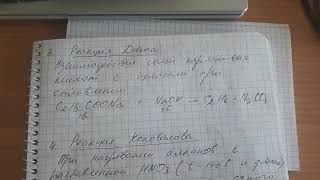 3. Реакция Дюма
Взаимодействие солей карбоновых
кислот с щелочами при
сплавлении
C2H5COONa + NaOH → C2H6 + Na2CO3
тв. тв.
4. Реакция Коновалова
При нагревании алканов с
разбавленной HNO3 (t = 140 t и давл